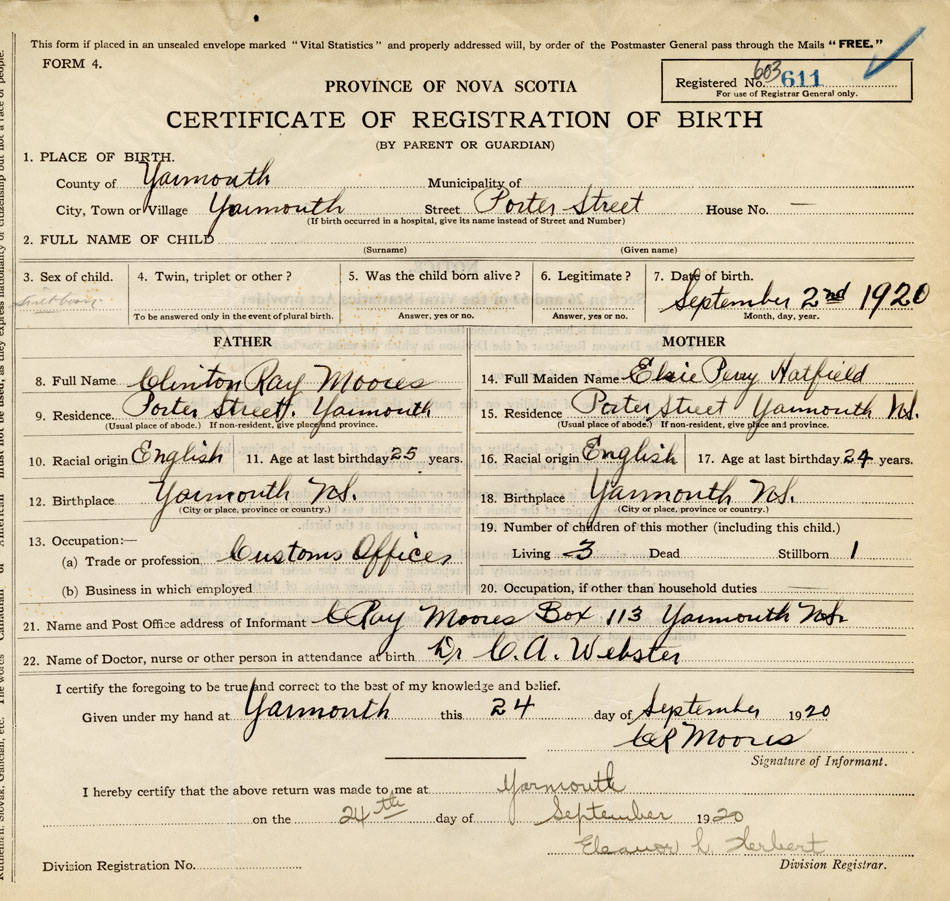 This form if placed in an unsealed envelope marked "Vital Statistics" and properly addressed will, by order of the Postmaster General pass through the Mails "FREE."
FORM 4.
Registered No. 603 611
For use of Registrar General only.
PROVINCE OF NOVA SCOTIA
CERTIFICATE OF REGISTRATION OF BIRTH
(BY PARENT OR GUARDIAN)
1. PLACE OF BIRTH.
County of Yarmouth Municipality of
City, Town or Village Yarmouth Street Porter Street House No. —
(If birth occurred in a hospital, give its name instead of Street and Number)
2. FULL NAME OF CHILD
(Surname) (Given name)
3. Sex of child. 4. Twin, triplet or other? 5. Was the child born alive? 6. Legitimate? 7. Date of birth.
September 2nd 1920
To be answered only in the event of plural birth. Answer, yes or no. Answer, yes or no. Month, day, year.
FATHER MOTHER
8. Full Name Clinton Ray Moores 14. Full Maiden Name Elsie Perry Hatfield
9. Residence Porter Street. Yarmouth 15. Residence Porter Street Yarmouth N.S.
(Usual place of abode.) If non-resident, give place and province. (Usual place of abode.) If non-resident, give place and province.
10. Racial origin English 11. Age at last birthday 25 years. 16. Racial origin English 17. Age at last birthday 24 years.
12. Birthplace Yarmouth N.S. 18. Birthplace Yarmouth N.S.
(City or place, province or country.) (City or place, province or country.)
19. Number of children of this mother (including this child.)
13. Occupation:—
(a) Trade or profession Customs Officer Living 3 Dead Stillborn 1
(b) Business in which employed 20. Occupation, if other than household duties
21. Name and Post Office address of Informant C Ray Moores Box 113 Yarmouth N.S.
22. Name of Doctor, nurse or other person in attendance at birth Dr C. A. Webster
I certify the foregoing to be true and correct to the best of my knowledge and belief.
Given under my hand at Yarmouth this 24 day of September 1920
CR Moores
Signature of Informant.
I hereby certify that the above return was made to me at Yarmouth
on the 24th day of September 1920
Eleanor L. Herbert
Division Registration No. Division Registrar.